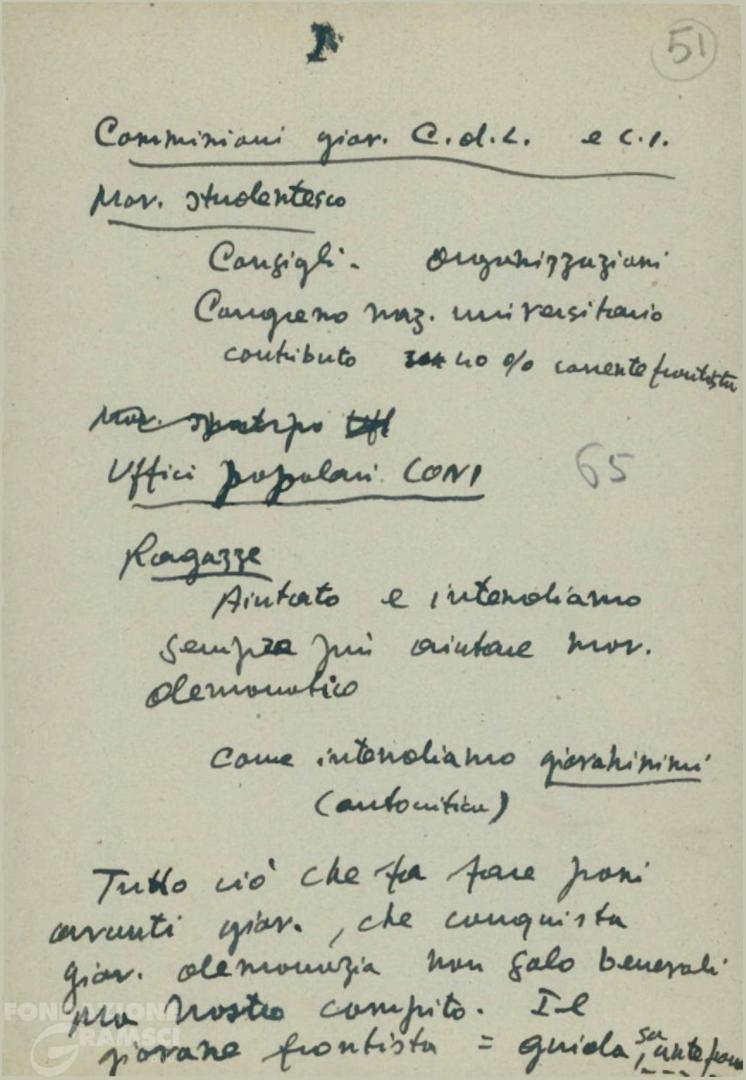 51
Commissioni giov. C.d.L. e C.I.
Mov. studentesco
Consigli - Organizzazioni
Congresso naz. universitario
contributo 40 % corrente frontista
Mov. sportivo
Uffici popolari CONI
65
Ragazze
Aiutato e intendiamo
sempre più aiutare mov.
democratico
Come intendiamo giovanissimi
(autocritica)
Tutto ciò che fa fare passi
avanti giov., che conquista
giov. democrazia non solo
ma nostro compito. Il
giovane frontista = guida,
FONDAZIONE
GRAMSCI